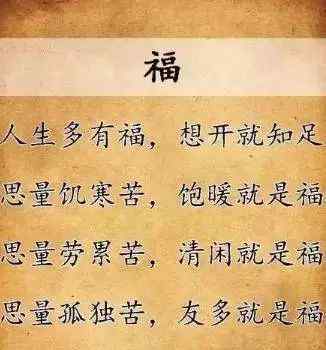 福
人生多有福，想开就知足
思量饥寒苦，饱暖就是福
思量劳累苦，清闲就是福
思量孤独苦，友多就是福